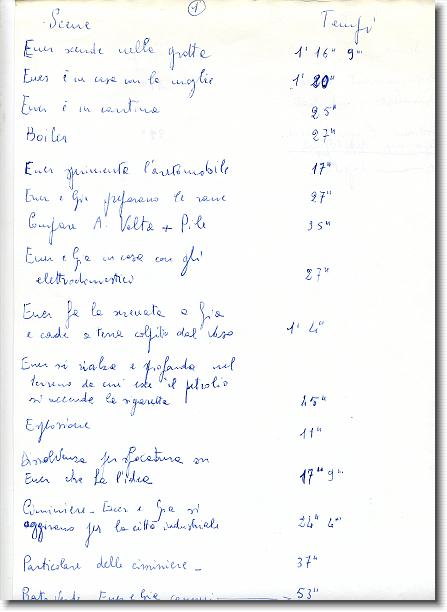 1
Scene Tempi
Ener scende nella grotta 1' 16" 9"
Ener è in casa con la moglie 1' 20"
Ener è in cantina 25"
Boiler 27"
Ener sperimenta l'automobile 17"
Ener e Gia preparano le rane 27"
Compare A. Volta + Pile 35"
Ener e Gia in casa con gli
elettrodomestici 27"
Ener fa la serenata a Gia
e cade a terra colpito dal vaso 1' 4"
Ener si rialza e sprofonda nel
terreno da cui esce il petrolio
si accende la sigaretta 45"
Esplosione 11"
Dissolvenza per sfocatura su
Ener che ha l'idea 17" 9"
Ciminiere - Ener e Gia si
aggirano per la città industriale 24" 4"
Particolare delle ciminiere - 37"
Prato verde Ener e Gia 53"